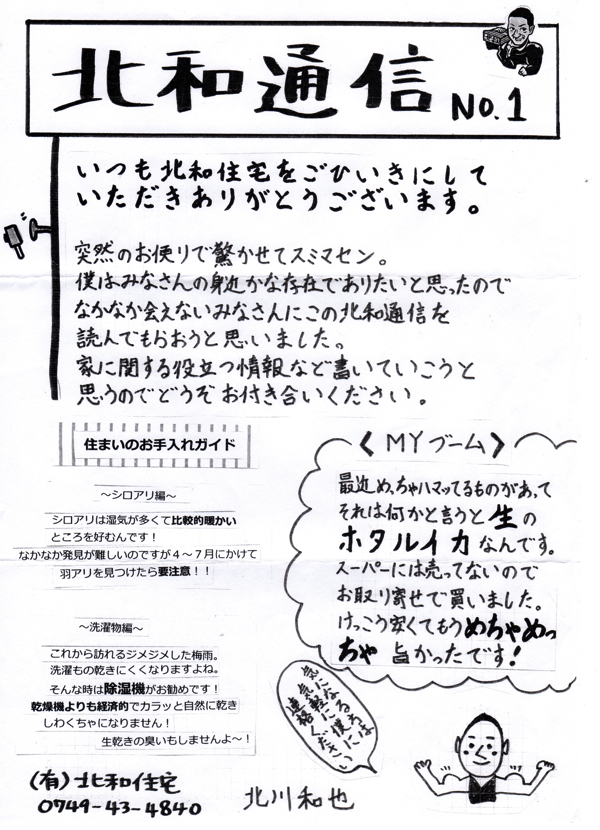 北和通信 NO.1
いつも北和住宅をごひいきにして
いただきありがとうございます。
突然のお便りで驚かせてスミマセン。
僕はみなさんの身近かな存在でありたいと思ったので
なかなか会えないみなさんにこの北和通信を
読んでもらおうと思いました。
家に関する役立つ情報など書いていこうと
思うのでどうぞお付き合いください。
住まいのお手入れガイド
～シロアリ編～
シロアリは湿気が多くて比較的暖かい
ところを好むんです！
なかなか発見が難しいのですが４～７月にかけて
羽アリを見つけたら要注意！！
～洗濯物編～
これから訪れるジメジメした梅雨。
洗濯もの乾きにくくなりますよね。
そんな時は除湿機がお勧めです！
乾燥機よりも経済的でカラッと自然に乾き
しわくちゃになりません！
生乾きの臭いもしませんよ～！
《MYブーム》
最近めっちゃハマッてるものがあって
それは何かと言うと生の
ホタルイカなんです。
スーパーには売ってないので
お取り寄せで買いました。
けっこう安くてもうめちゃめっ
ちゃ旨かったです！
気になる方は
気軽に僕に
連絡ください
(有)北和住宅
0749-43-4840
北川和也